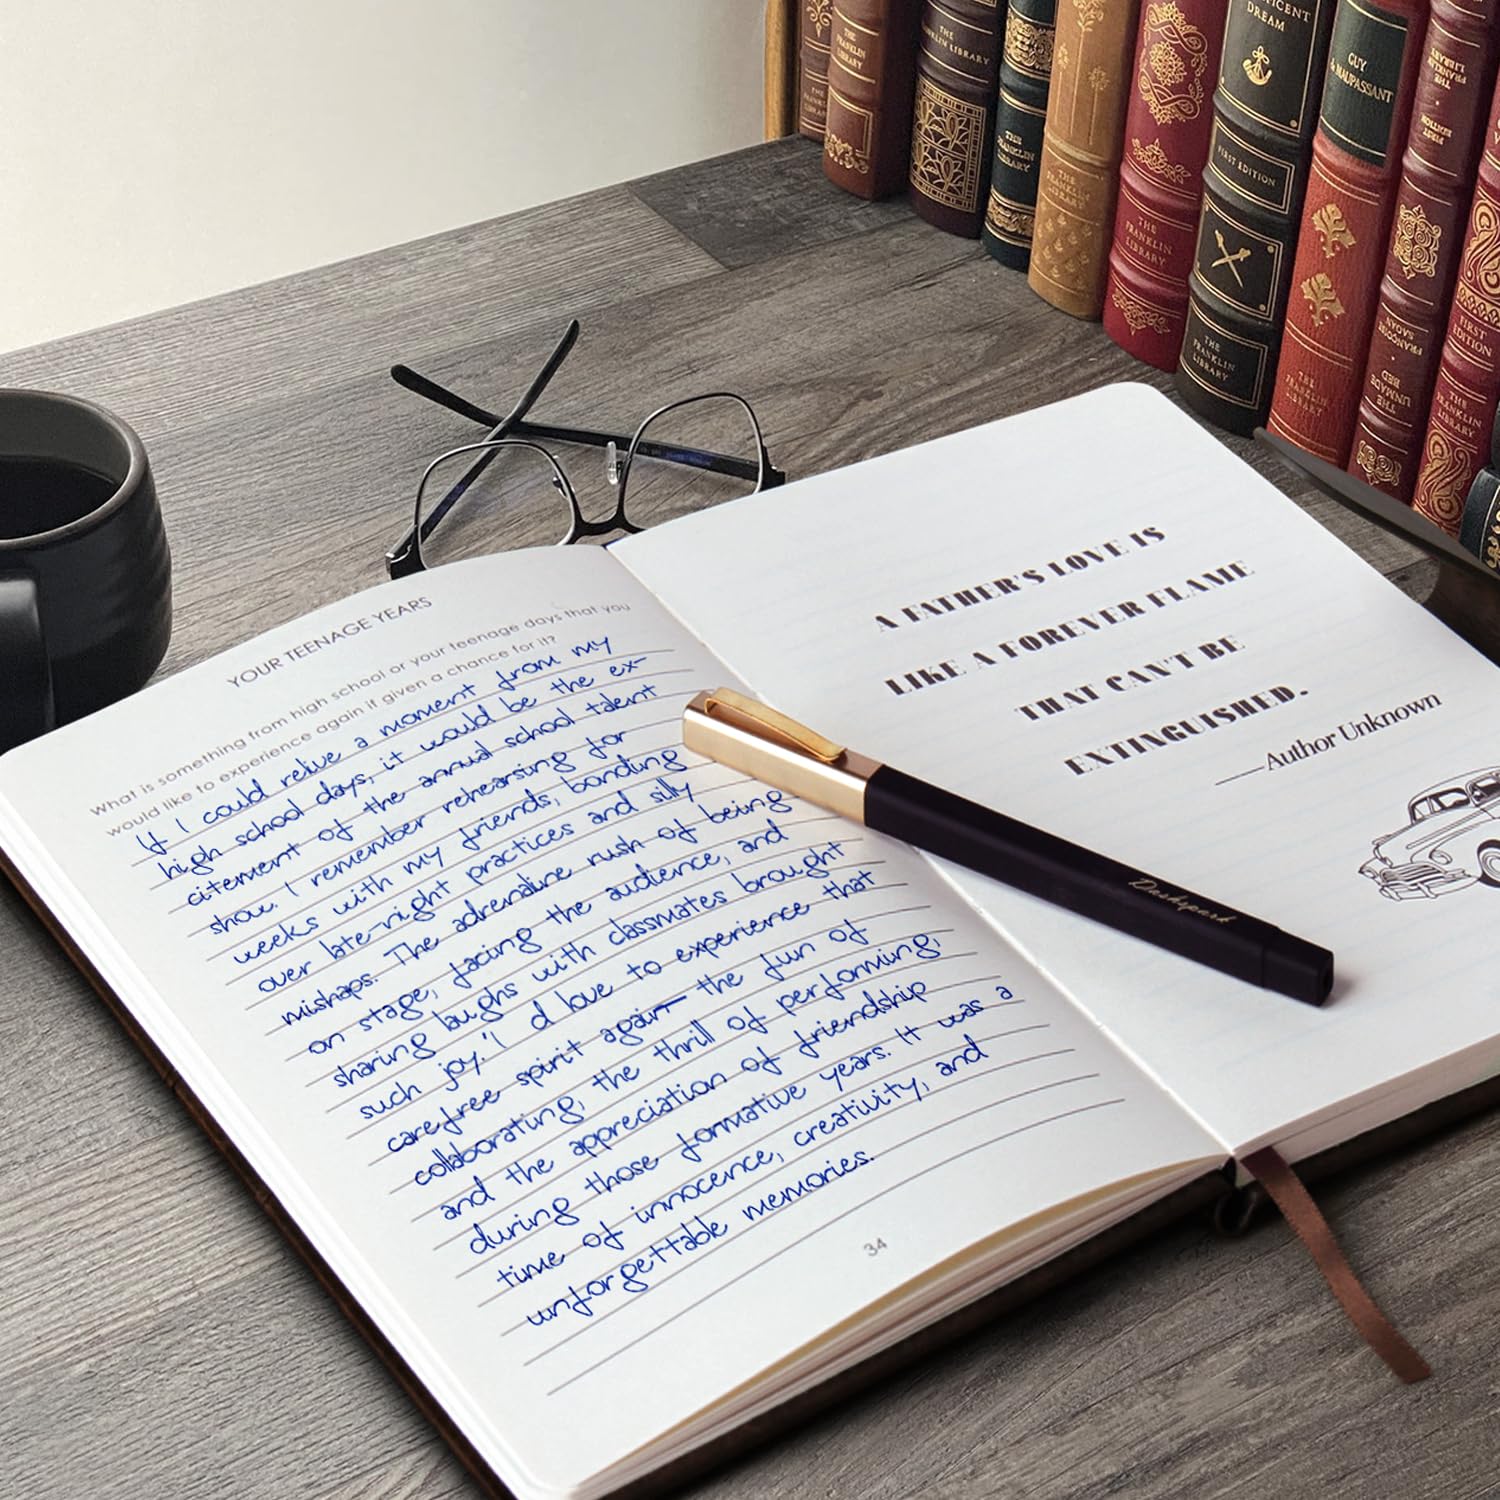 YOUR TEENAGE YEARS
What is something from high school or your teenage days that you
would like to experience again if given a chance for it?
If I could relive a moment from my
high school days, it would be the ex-
citement of the annual school talent
show. I remember rehearsing for
weeks with my friends, bonding
over late-night practices and silly
mishaps. The adrenaline rush of being
on stage, facing the audience, and
sharing laughs with classmates brought
such joy. I'd love to experience that
carefree spirit again— the fun of
collaborating, the thrill of performing,
and the appreciation of friendship
during those formative years. It was a
time of innocence, creativity, and
unforgettable memories.
34
A FATHER'S LOVE IS
LIKE A FOREVER FLAME
THAT CAN'T BE
EXTINGUISHED.
—Author Unknown
Dashspark
THE FRANKLIN LIBRARY
THE FRANKLIN LIBRARY
THE FRANKLIN LIBRARY
THE FRANKLIN LIBRARY
THE FRANKLIN LIBRARY
THE FRANKLIN LIBRARY
DREAM
FIRST EDITION
THE FRANKLIN LIBRARY
GUY
MAUPASSANT
THE FRANKLIN LIBRARY
THE FRANKLIN LIBRARY
FIRST EDITION
FRANÇOISE SAGAN
THE UNMADE BED
FIRST EDITION
THE FRANKLIN LIBRARY